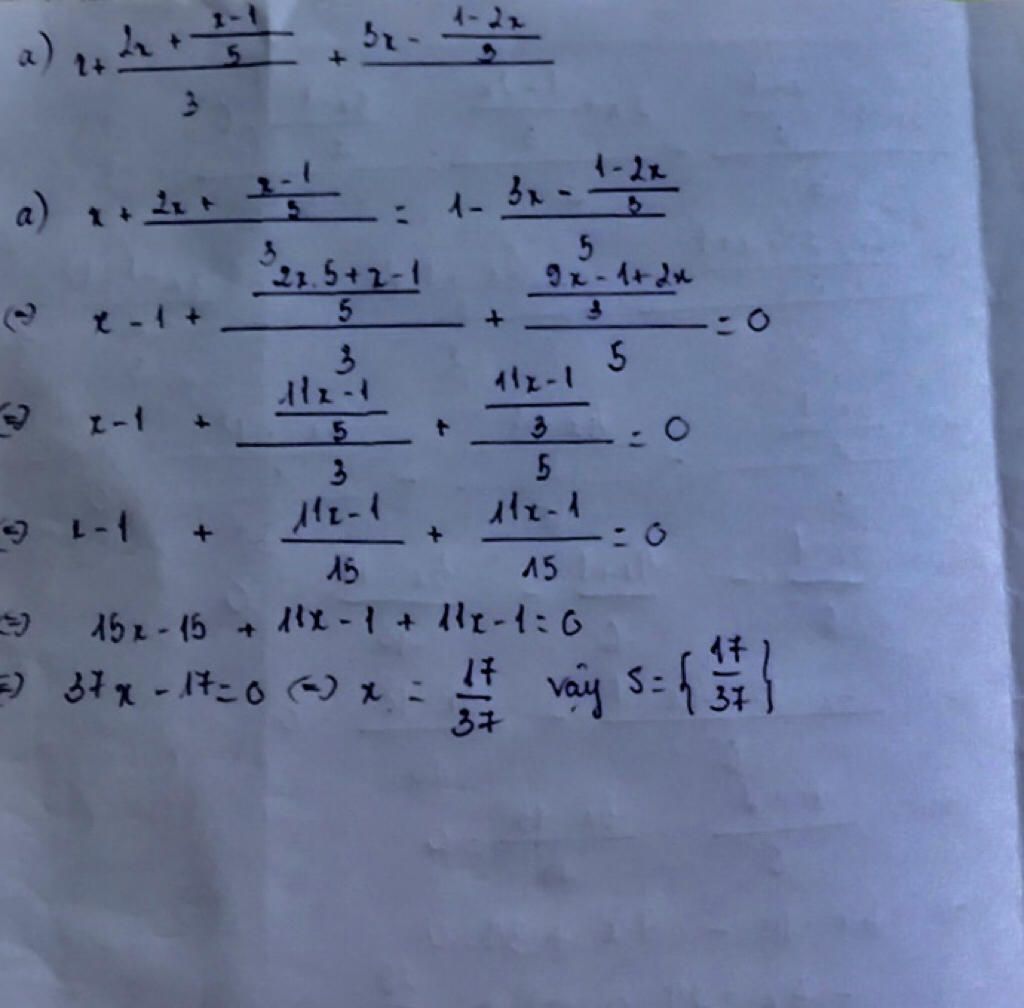 a) x + (2x + (x-1)/5)/3 + 3x - (1-2x)/3
a) x + (2x + (x-1)/5)/3 = 1 - (3x - (1-2x)/3)/5
(=) x - 1 + ((2x.5+x-1)/5)/3 + ((9x-1+2x)/3)/5 = 0
(=) x-1 + ((11x-1)/5)/3 + ((11x-1)/3)/5 = 0
(=) x-1 + (11x-1)/15 + (11x-1)/15 = 0
(=) 15x-15 + 11x-1 + 11x-1=0
(=) 37x - 17=0 (=) x = 17/37 vậy S={17/37}